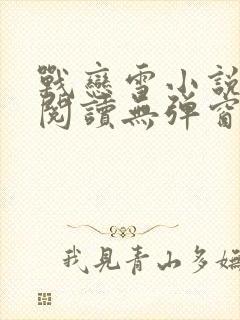 戰戀雪小說
閱讀無彈窗
我見青山多嫵